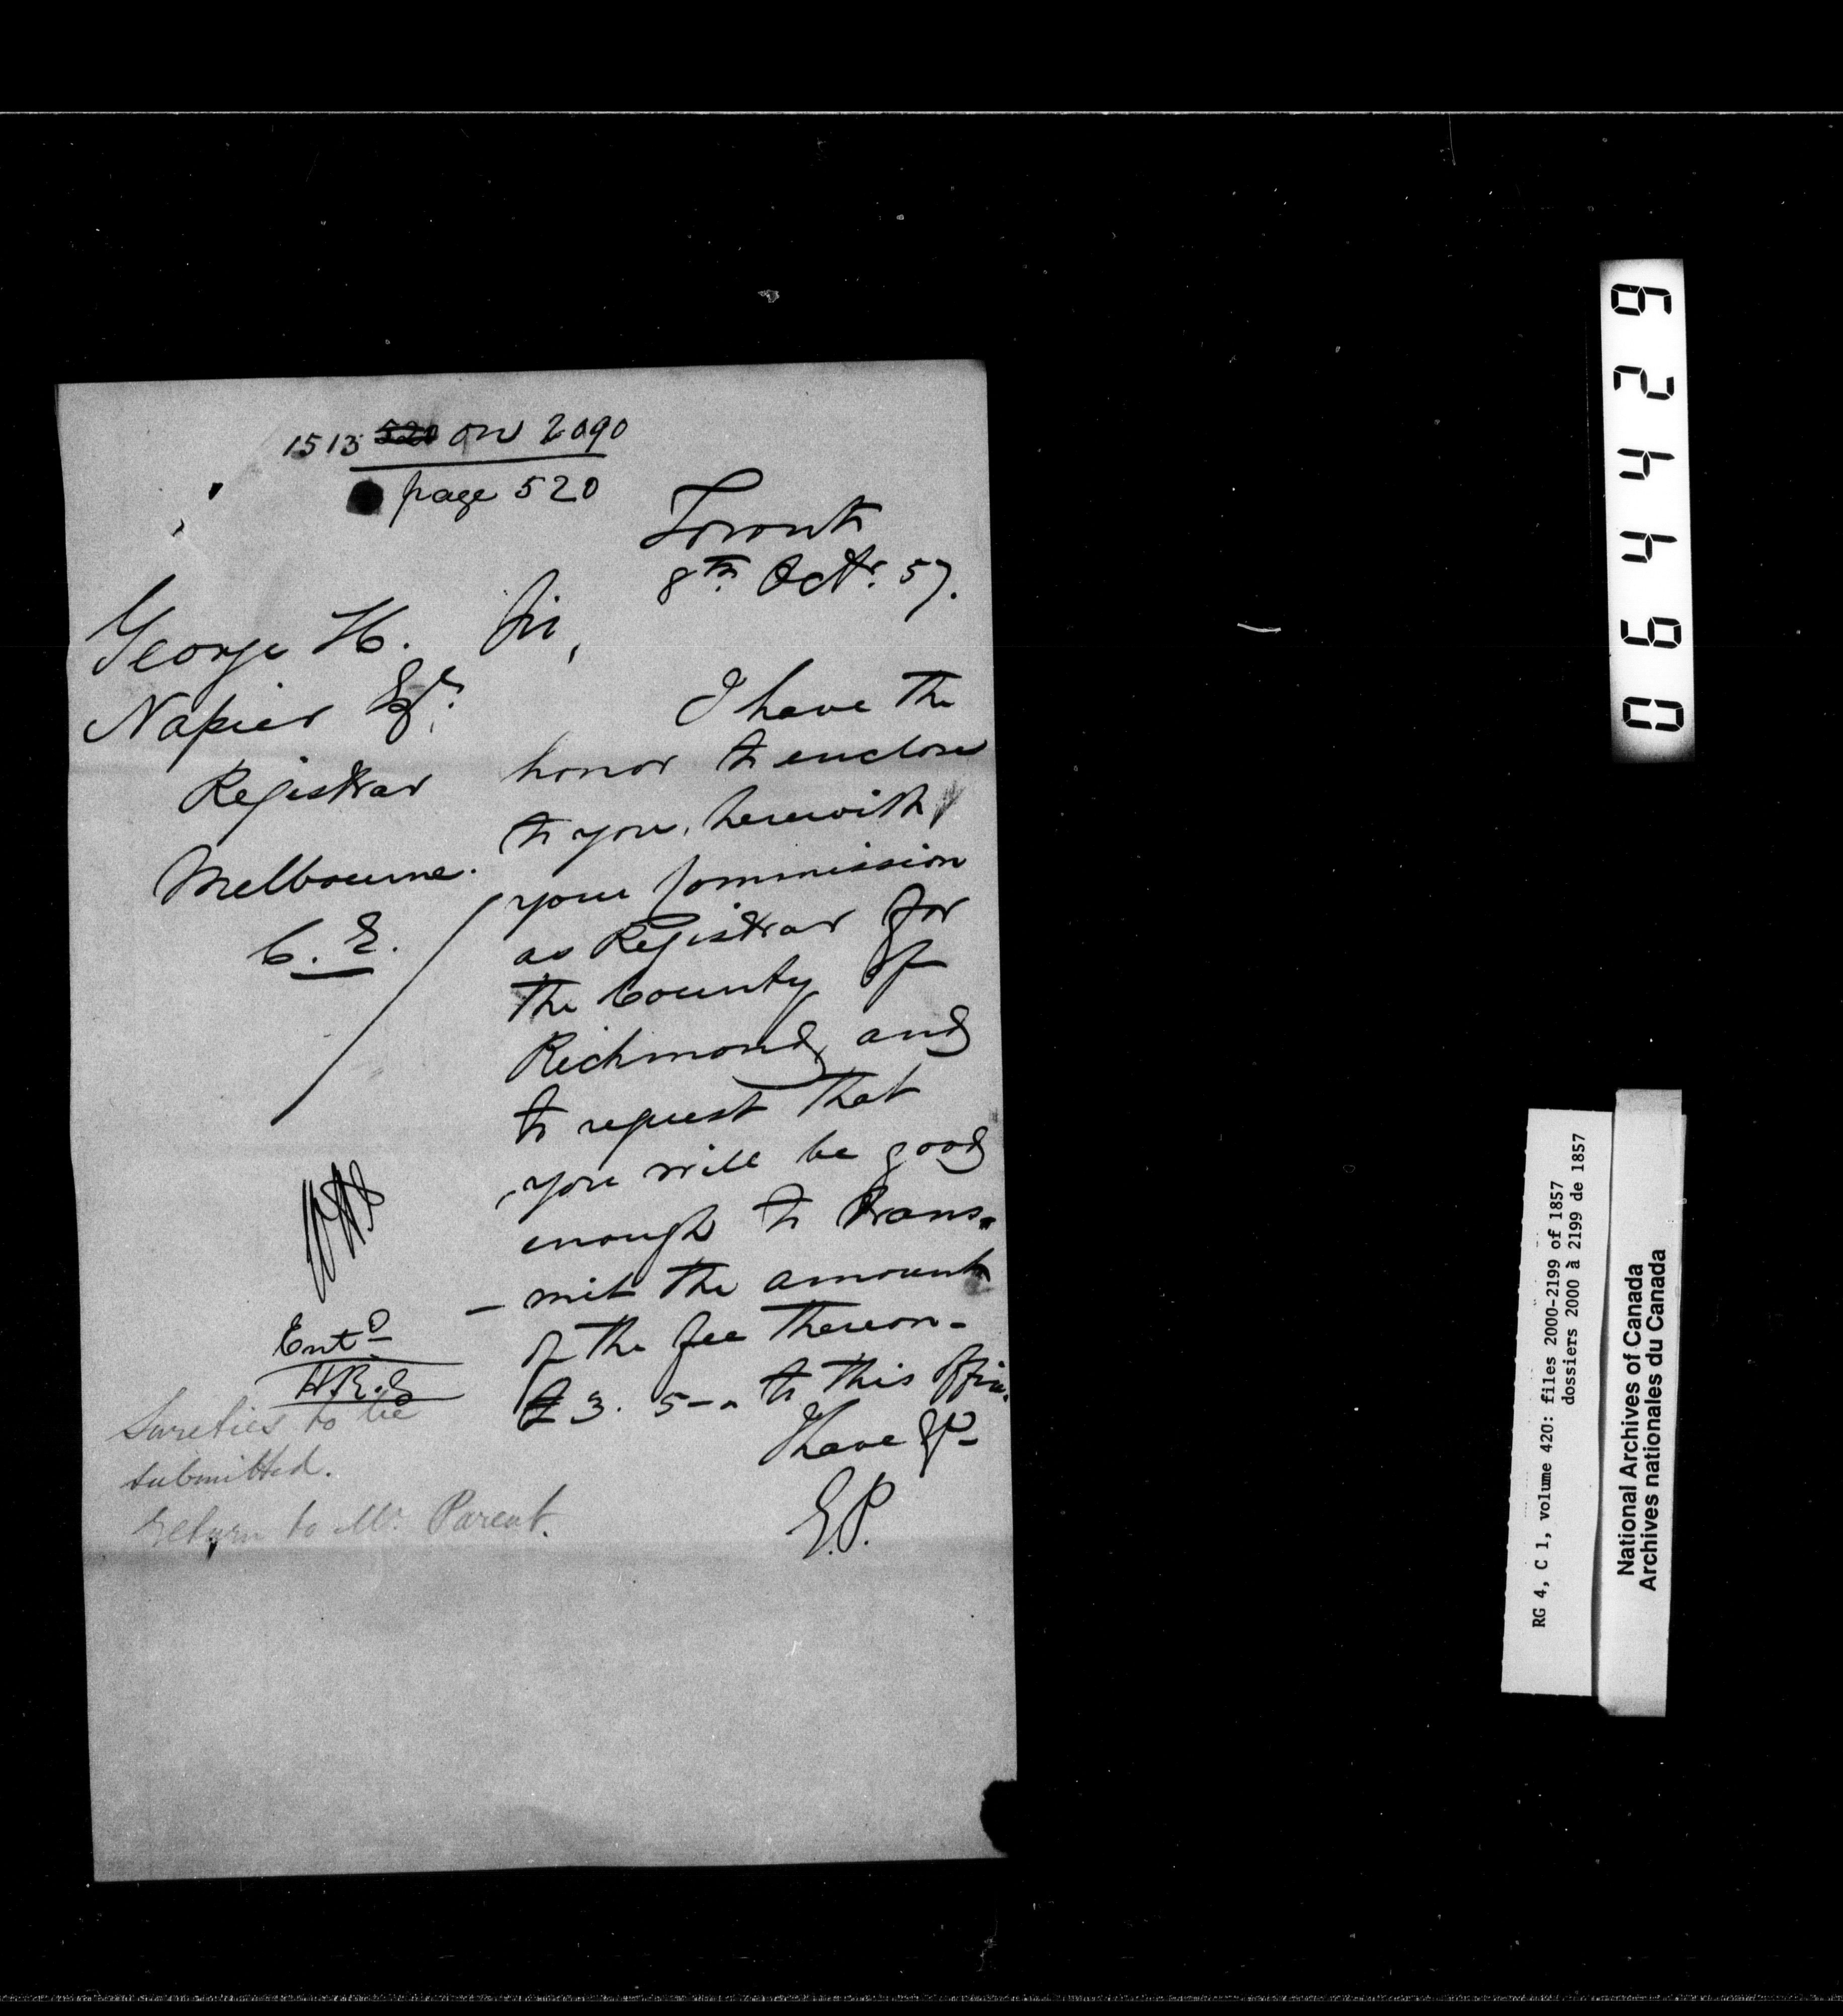 1513 520 on 2090
page 520
Toronto
8th Octr. 57.
George H.
Napier Esqr.
Registrar
Melbourne.
C. E.
Sir,
I have the
honor to enclose
to you, herewith,
your Commission
as Registrar for
the County of
Richmond, and
to request that
you will be good
enough to trans-
- mit the amount
of the fee thereon -
£3. 5 - - to this office.
I have &c
E.P.
Entd
H.R.E
Sureties to be
submitted.
return to Mr. Parent.
064429
RG 4, C 1, volume 420: files 2000-2199 of 1857
dossiers 2000 à 2199 de 1857
National Archives of Canada
Archives nationales du Canada